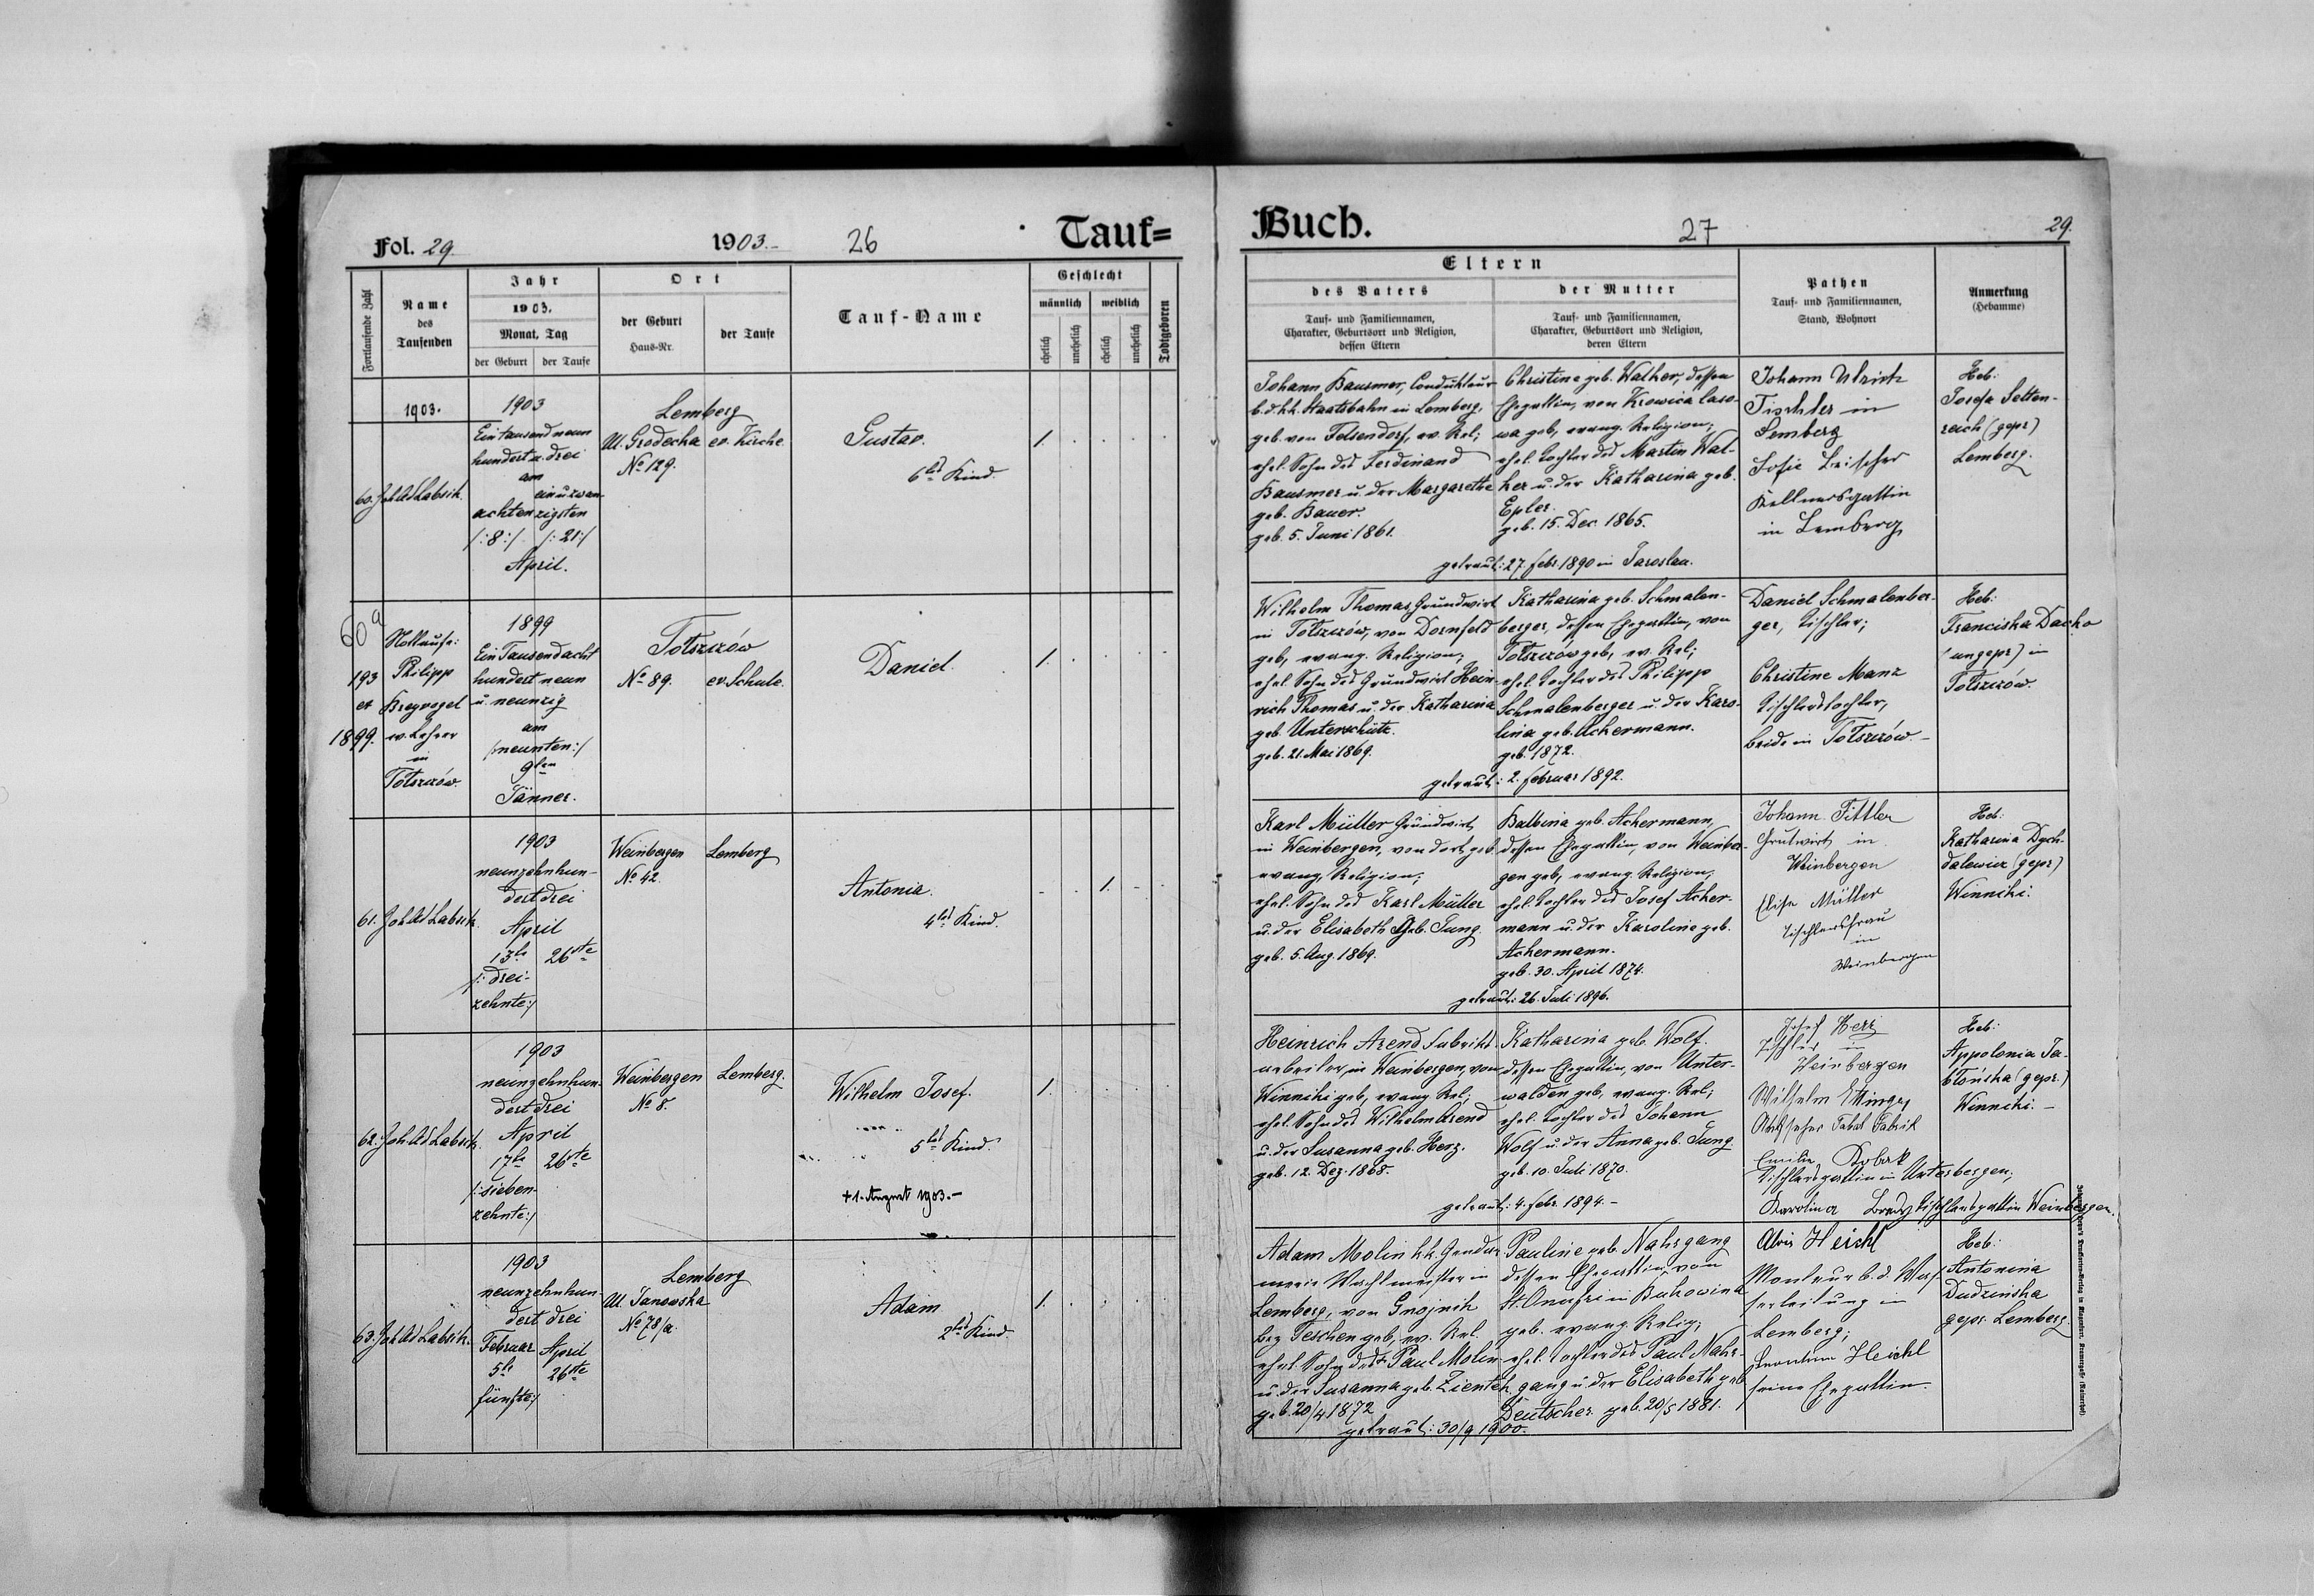 Fol. 29.
1903.-
26
Tauf=
Fortlaufende Zahl
Name
des
Taufenden
Jahr
1903.
Monat, Tag
der Geburt
der Taufe
Ort
der Geburt
Haus-Nr.
der Taufe
Tauf-Name
Geschlecht
männlich
weiblich
ehelich
unehelich
ehelich
unehelich
Todtgeboren
1903.
60. Joh. Ad. Labsik.
1903
Ein tausend neun
hundert u. drei
am
ein u. zwan-
achten zigsten
/:8:/ /:21:/
April.
Lemberg
Ul. Grodecka ev. Kirche
No 129.
Gustav.
6tes Kind.
1.
60a
193
et
1899.
Nottaufe:
Philipp
Breyvogel
ev. Lehrer
in
Totszczów.
1899
Ein Tausend acht
hundert neun
u. neunzig
am
/:neunten:/
9ten
Jänner.
Totszczów
No 89. ev. Schule.
Daniel.
1.
61. Joh. Ad. Labsik.
1903
neunzehnhun-
dert drei
April
13te 26ste
/:drei-
zehnte:/
Weinbergen Lemberg
No 42.
Antonia.
4tes Kind.
1.
62. Joh. Ad. Labsik.
1903
neunzehnhun-
dert drei
April
17te 26ste
/:sieben-
zehnte:/
Weinbergen Lemberg.
No 8.
Wilhelm Josef.
5tes Kind.
+ 1. August 1903.-
1.
63. Joh. Ad. Labsik.
1903
neunzehnhun-
dert drei
Februar April
5te 26ste
fünfte:/
Lemberg
Ul. Janowska
No 78/a.
Adam
2tes Kind.
1.
Buch.
27
29.
Eltern
des Vaters
Tauf- und Familiennamen,
Charakter, Geburtsort und Religion,
dessen Eltern
der Mutter
Tauf- und Familiennamen,
Charakter, Geburtsort und Religion,
deren Eltern
Pathen
Tauf- und Familiennamen,
Stand, Wohnort
Anmerkung
(Hebamme)
Johann Bausmer, Condukteur
b. d. k.k. Staatsbahn in Lemberg,
geb. von Felsendorf, ev. Rel;
ehel. Sohn des Ferdinand
Bausmer u. der Margarethe
geb. Bauer.
geb. 5. Juni 1861.
Christine geb. Walker, dessen
Ehegattin, von Krowica laso-
wa geb, evang. Religion;
ehel. Tochter des Martin Wal-
ker u. der Katharina geb.
Epler.
geb. 15. Dec. 1865.
getraut: 27. febr. 1890 in Jaroslau.
Johann Ulrich
Tischler in
Lemberg
Sofie Leischer
Kellnersgattin
in Lemberg
Heb:
Josefa Setten-
reich (gepr)
Lemberg.
Wilhelm Thomas Grundwirt
in Totszczów, von Dornfeld
geb, evang. Religion;
ehel. Sohn des Grundwirt Hein-
rich Thomas u. der Katharina
geb. Unterschütz.
geb. 21. Mai 1869.
Katharina geb. Schmalen-
berger, dessen Ehegattin, von
Totszczów geb, ev. Rel;
ehel. Tochter des Philipp
Schmalenberger u. der Karo-
lina geb. Ackermann.
geb. 1872.
getraut: 2. februar 1892.
Daniel Schmalenber-
ger, Tischler;
Christine Manz
Tischlerstochter,
beide in Totszczów.-
Heb:
Franciska Dacho
(ungepr) in
Totszczów.
Karl Müller Grundwirt
in Weinbergen, von dort geb.
evang. Religion;
ehel. Sohn des Karl Müller
u. der Elisabeth geb. Jung.
geb. 5. Aug. 1869.
Balbina geb. Ackermann,
dessen Ehegattin, von Weinber-
gen geb, evang. Religion,
ehel. Tochter des Josef Acker-
mann u. der Karoline geb.
Ackermann.
geb. 30. April 1874.
getraut: 26. Juli 1896.
Johann Tittler
Grutwirt in
Weinbergen
Elise Müller
Tischlersfrau
in
Weinbergen
Heb:
Katharina Dych-
dalewicz (gepr)
Winniki.
Heinrich Arend Fabriks-
arbeiter, in Weinbergen, von
Winniki geb, evang. Rel;
ehel. Sohn des Wilhelm Arend
u. der Susanna geb. Herz.
geb. 12. Dez. 1868.
Katharina geb. Wolf.
dessen Ehegattin, von Unter-
walden geb, evang. Rel;
ehel. Tochter des Johann
Wolf u. der Anna geb. Jung.
geb. 10. Juli 1870.
getraut: 4. febr. 1894.-
Josef Herz
Tischler in
Weinbergen
Wilhelm Ettinger
Aufseher Tabak Fabrik
Emilie
Tischlersgattin in Unterbergen;
Karolina Tischlersgattin Weinbergen.
Heb:
Appolonia Ja-
błońska (gepr.)
Winniki.-
Adam Molin k.k. Gendar-
merie Wachtmeister in
Lemberg, von Gnojnik
Bez Teschen geb, ev. Rel.
ehel. Sohn des Paul Molin
u. der Susanna geb. Zientek
geb. 20/4 1872
Pauline geb. Nahrgang
dessen Ehegattin, von
St. Onufri in Bukowina
geb. evang. Relig;
ehel. Tochter des Paul Nahr-
gang u. der Elisabeth geb.
Deutscher. geb. 20/5 1881.
getraut: 30/9 1900.
Alois Heichl
Monteur b. d. Was-
serleitung in
Lemberg;
Heichl
seine Ehegattin.
Heb:
Antonina
Dudzinska
gepr. Lemberg